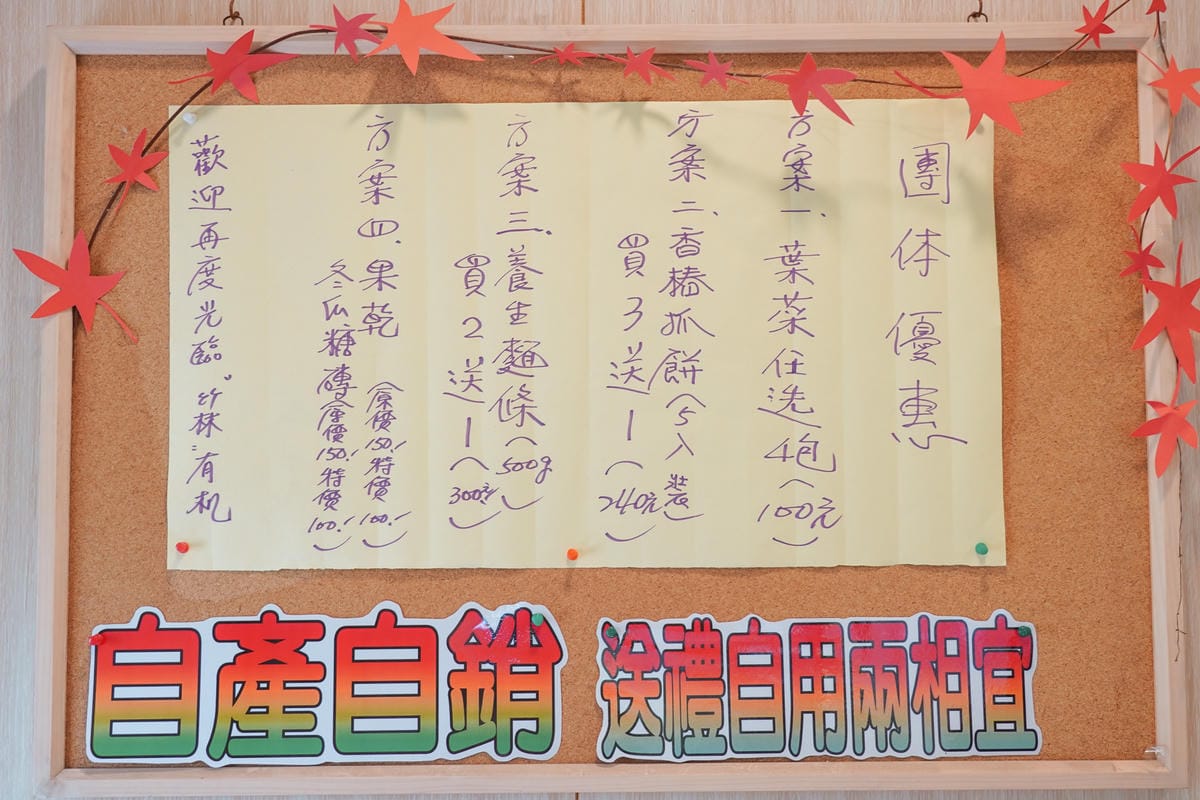 團体優惠
方案一.葉菜任选4包(100元)
方案二.香椿抓餅(5入裝)
買3送1(240元)
方案三.養生麵條(500g)
買2送1(300元)
方案四.果乾(原價150.特價100.)
冬瓜糖磚(原價150.特價100.)
歡迎再度光臨。林有机
自產自銷
送禮自用兩相宜